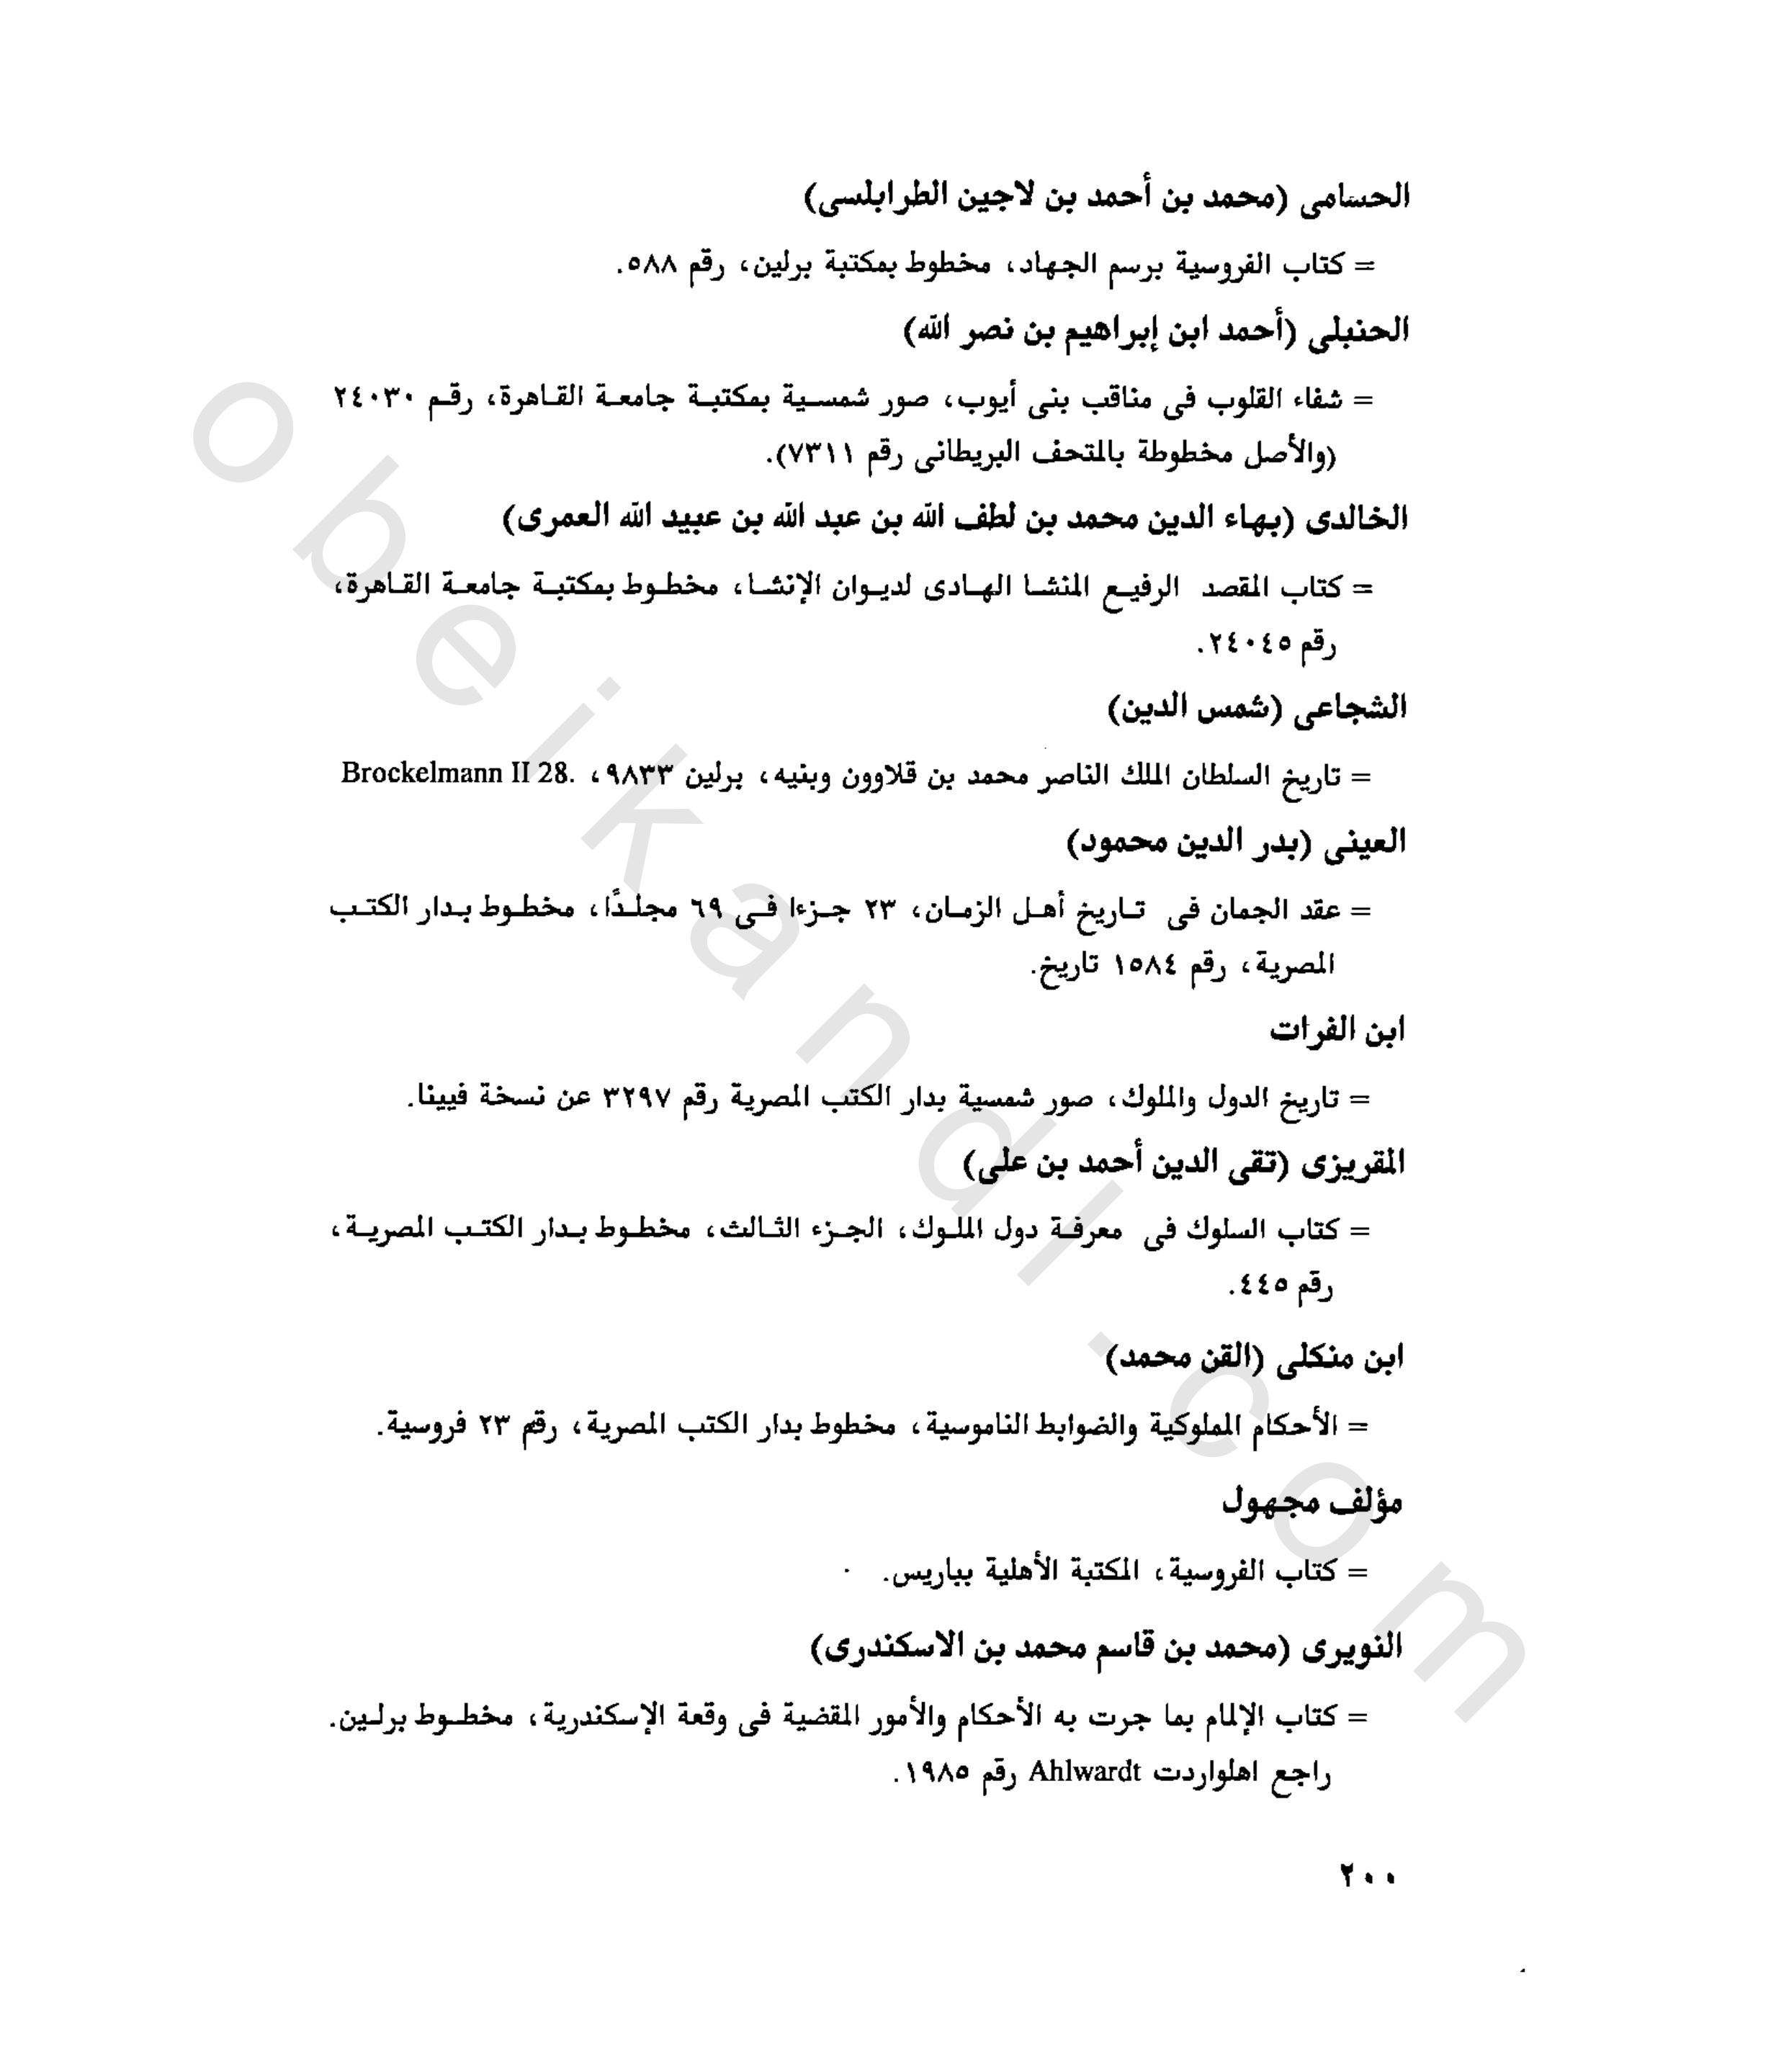 الحسامى (محمد بن أحمد بن لاجين الطرابلسى)
= كتاب الفروسية برسم الجهاد، مخطوط بمكتبة برلين، رقم ٥٨٨.
الحنبلى (أحمد ابن إبراهيم بن نصر الله)
= شفاء القلوب فى مناقب بنى أيوب، صور شمسية بمكتبة جامعة القاهرة، رقم ٢٤٠٣٠
(والأصل مخطوطة بالمتحف البريطانى رقم ٧٣١١).
الخالدى (بهاء الدين محمد بن لطف الله بن عبد الله بن عبيد الله العمرى)
= كتاب المقصد الرفيع المنشا الهادى لديوان الإنشا، مخطوط بمكتبة جامعة القاهرة،
رقم ٢٤٠٤٥.
الشجاعى (شمس الدين)
= تاريخ السلطان الملك الناصر محمد بن قلاوون وبنيه، برلين ٩٨٣٣، Brockelmann II 28.
العينى (بدر الدين محمود)
= عقد الجمان فى تاريخ أهل الزمان، ٢٣ جزءا فى ٦٩ مجلدًا، مخطوط بدار الكتب
المصرية، رقم ١٥٨٤ تاريخ.
ابن الفرات
= تاريخ الدول والملوك، صور شمسية بدار الكتب المصرية رقم ٣٢٩٧ عن نسخة فيينا.
المقريزى (تقى الدين أحمد بن على)
= كتاب السلوك فى معرفة دول الملوك، الجزء الثالث، مخطوط بدار الكتب المصرية،
رقم ٤٤٥.
ابن منكلى (القن محمد)
= الأحكام الملوكية والضوابط الناموسية، مخطوط بدار الكتب المصرية، رقم ٢٣ فروسية.
مؤلف مجهول
= كتاب الفروسية، المكتبة الأهلية بباريس.
النويرى (محمد بن قاسم محمد بن الاسكندرى)
= كتاب الإلمام بما جرت به الأحكام والأمور المقضية فى وقعة الإسكندرية، مخطوط برلين.
راجع اهلواردت Ahlwardt رقم ١٩٨٥.
٢٠٠
obeikandl.com